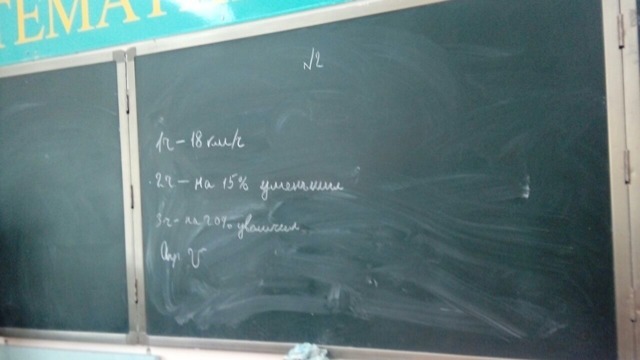 ТЕМАТ
№2
1ч – 18 км/ч
2ч – на 15% уменьшил
3ч – на 20% увеличил
Ср. V